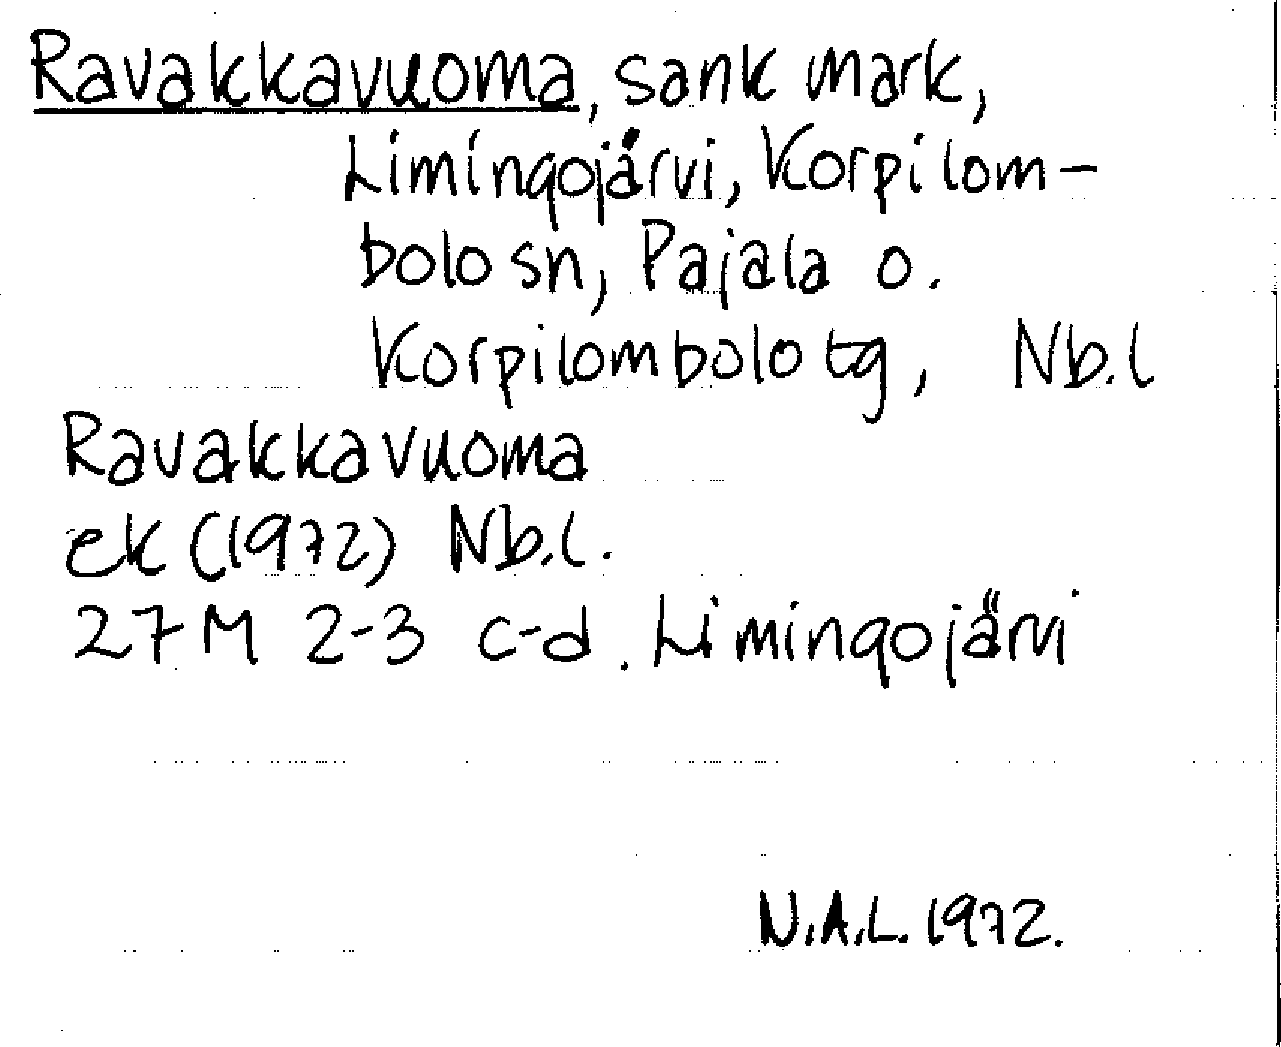 Ravakkavuoma, sank mark,
Limingojärvi, Korpilom-
bolo sn, Pajala o.
Korpilombolo tg, Nb.l
Ravakkavuoma
ek (1972) Nb.l.
27M 2-3 c-d. Limingojärvi
N.A.L. 1972.